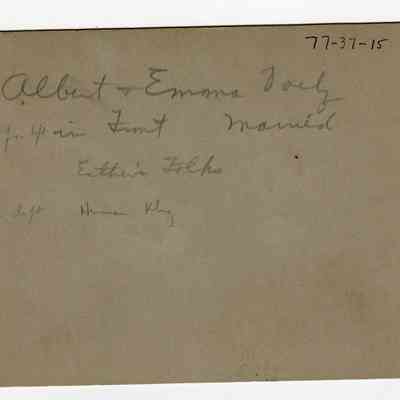 77-37-15
Albert + Emma Voelz
in Front Married
Esther's Folks
Herman